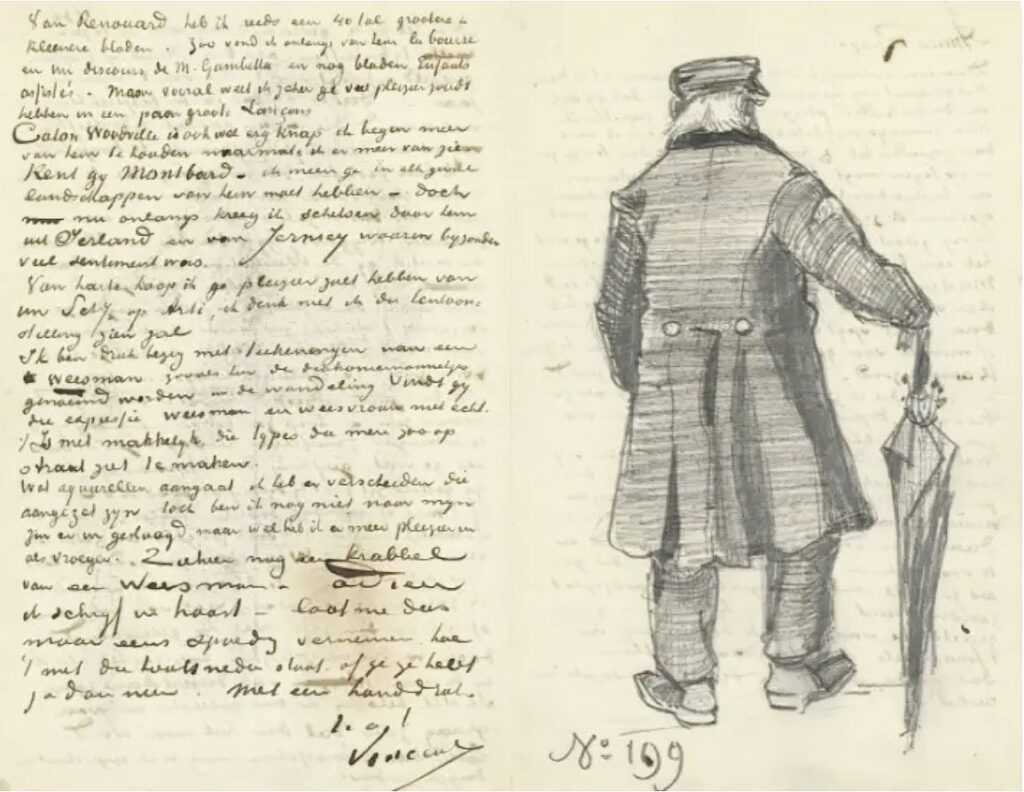 Van Renouard heb ik reeds een 40 tal grootere &
kleenere bladen. Zoo vond ik onlangs van hem la bourse
en un discours de M. Gambetta en nog bladen Enfants
assistés. Maar vooral weet ik zeker ge veel pleizier zoudt
hebben in een paar groote Lançons
Caton Woodville is ook wel erg knap ik begin meer
van hem te houden naarmate ik er meer van zie.
Kent gij Montbard – ik meen ge in elk geval
landschappen van hem moet hebben – doch
nu onlangs kreeg ik schetsen door hem
uit Ierland en van Jersey waarin byzonder
veel sentiment was.
Van harte hoop ik ge pleizier zult hebben van
uw Schij op Arti, ik denk niet ik die tentoon-
stelling zien zal
Ik ben druk bezig met teekeningen van een
weesman zooals hier de diakoniemannetjes
genoemd worden in de wandeling Vindt gij
die expressie weesman en weesvrouw niet echt.
't Is niet makkelyk die types die men zoo op
straat ziet te maken.
Wat aquarellen aangaat ik heb er verscheiden die
aangezet zyn toch ben ik nog niet naar myn
zin er in geslaagd maar wel heb ik er meer pleizier in
als vroeger. Ziehier nog een krabbel
van een Weesman – adieu
ik schrijf in haast – laat me dus
maar eens spoedig vernemen hoe
't met die houtsneden staat of ge ze hebt
ja dan neen. Met een handdruk.
t. à t.
Vincent
No 199